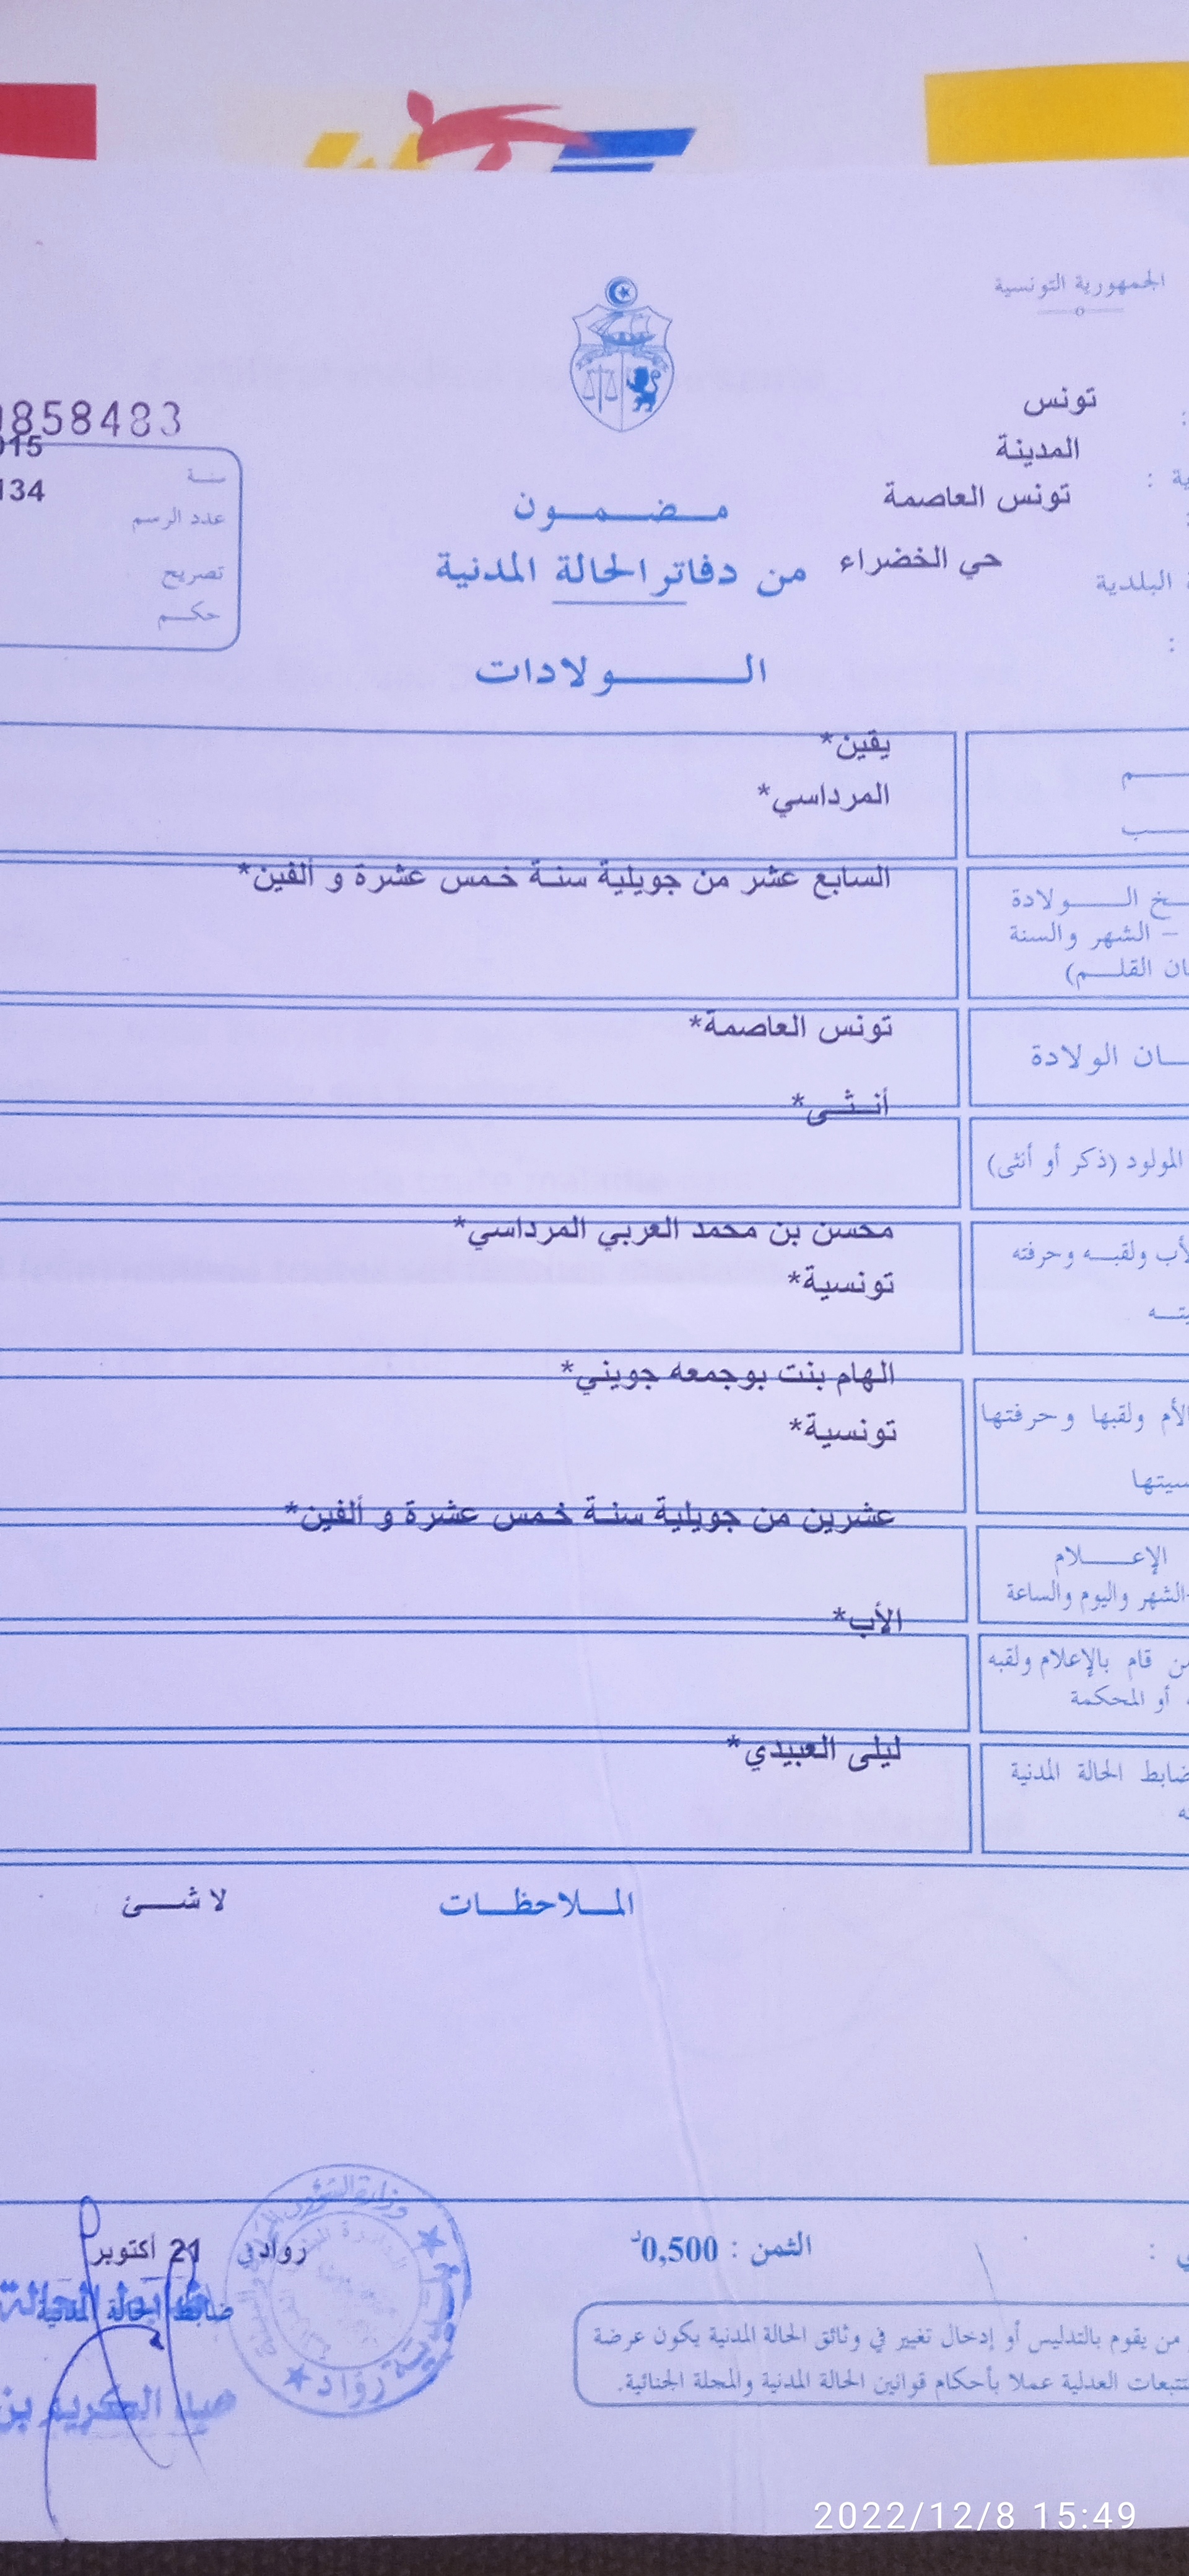 الجمهورية التونسية
858483
تونس
المدينة
تونس العاصمة
حي الخضراء
البلدية
015
134
سنة
عدد الرسم
تصريح
حكم
مضمون
من دفاتر الحالة المدنية
الولادات
يقين*
المرداسي*
السابع عشر من جويلية سنة خمس عشرة و ألفين*
الولادة
– الشهر والسنة
القلم)
تونس العاصمة*
الولادة
أنثى*
المولود (ذكر أو أنثى)
محسن بن محمد العربي المرداسي*
ولقبه وحرفته
تونسية*
الهام بنت بوجمعه جويني*
الأم ولقبها وحرفتها
تونسية*
عشرين من جويلية سنة خمس عشرة و ألفين*
الإعلام
الشهر واليوم والساعة
الأب*
قام بالإعلام ولقبه
أو المحكمة
ليلى العبيدي*
ضابط الحالة المدنية
الملاحظات
لا شئ
الثمن : 0,500د
رواد في 21 أكتوبر
ضابط الحالة المدنية
ضابط الحالة
عبد الكريم بن
رواد
من يقوم بالتدليس أو إدخال تغيير في وثائق الحالة المدنية يكون عرضة
للتتبعات العدلية عملا بأحكام قوانين الحالة المدنية والمجلة الجنائية.
2022/12/8 15:49